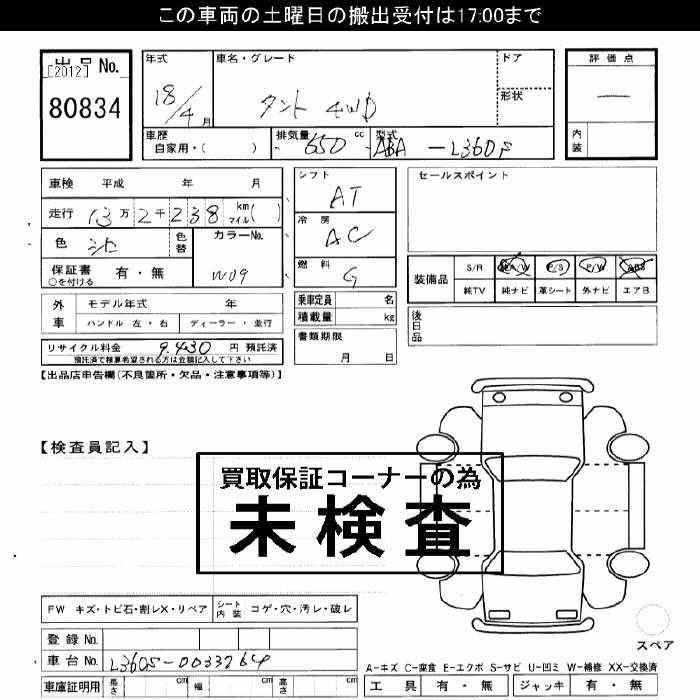 この車両の土曜日の搬出受付は17:00まで
出品 No.
[2012]
80834
年式
18/4月
車名・グレード
タント 4WD
ドア
形状
評価点
―
内装
車歴
自家用・( )
排気量
650 cc
型式
ABA-L360S
車検 平成 年 月
走行 13万2千238 km マイル( )
色
色替
カラーNo.
W09
保証書 有・無
○を付ける
シフト
AT
冷房
AC
燃料
G
乗車定員 名
積載量 kg
書類期限
月 日
セールスポイント
装備品
S/R A/W P/S P/W ABS
純TV 純ナビ 革シート 外ナビ エアB
後日品
外車
モデル年式 年
ハンドル 左・右 ディーラー・並行
リサイクル料金 9,430 円 預託済
預託済で積算希望される方は金額記入して下さい
【出品店申告欄(不良箇所・欠品・注意事項等)】
【検査員記入】
買取保証コーナーの為
未検査
FW キズ・トビ石・割レX・リペア
シート内装 コゲ・穴・汚レ・破レ
登録No.
車台No. L360S-0033264
車庫証明用 長さ cm 幅 cm 高さ cm
スペア
A-キズ C-腐食 E-エクボ S-サビ U-凹ミ W-補修 XX-交換済
工具 有・無 ジャッキ 有・無